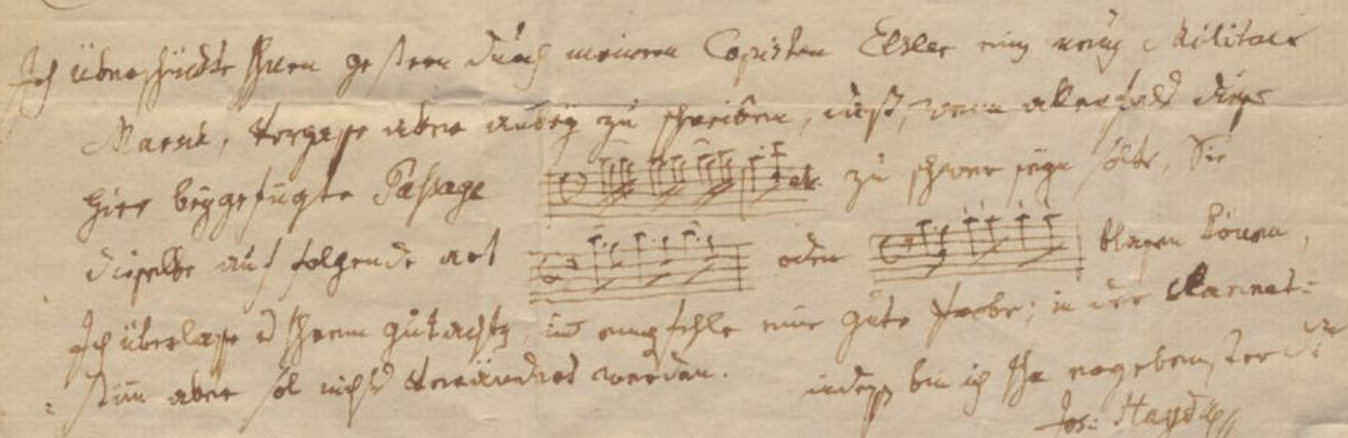 Ich überschickte Ihnen gestern durch meinen Copisten Elsler einen neuen Militair
Marsch, vergasse aber anbey zu schreiben, daß, wenn allenfals diese
hier beygefügte Passage etc. zu schwer seyn solte, Sie
dieselbe auf folgende art oder blasen können,
Ich überlasse es Ihrem gutachten, und empfehle eine gute Probe; in der Clarinet=
=stim aber sol nichts verändert werden. indessen bin ich Ihr ergebenster Dr
Jos: Haydn